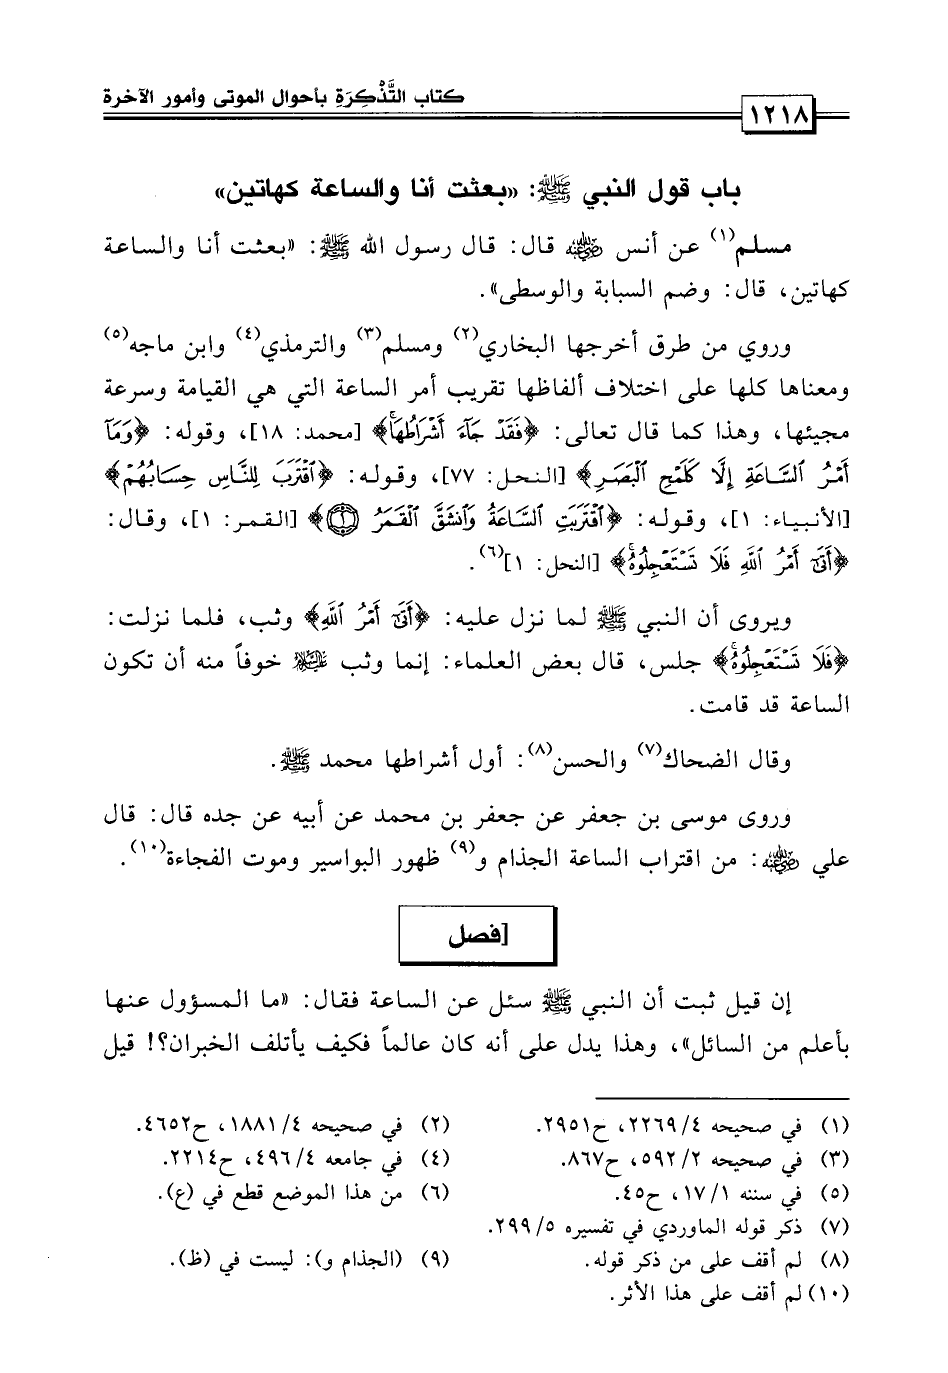 كتاب التَّذْكِرَةِ بأحوال الموتى وأمور الآخرة
١٢١٨
باب قول النبي ﷺ: «بعثت أنا والساعة كهاتين»
مسلم(١) عن أنس رضي الله عنه قال: قال رسول الله ﷺ: «بعثت أنا والساعة
كهاتين، قال: وضم السبابة والوسطى».
وروي من طرق أخرجها البخاري(٢) ومسلم(٣) والترمذي(٤) وابن ماجه(٥)
ومعناها كلها على اختلاف ألفاظها تقريب أمر الساعة التي هي القيامة وسرعة
مجيئها، وهذا كما قال تعالى: ﴿فَقَدْ جَآءَ أَشْرَاطُهَاۚ﴾ [محمد: ١٨]، وقوله: ﴿وَمَآ
أَمْرُ ٱلسَّاعَةِ إِلَّا كَلَمْحِ ٱلْبَصَرِ﴾ [النحل: ٧٧]، وقوله: ﴿ٱقْتَرَبَ لِلنَّاسِ حِسَابُهُمْ﴾
[الأنبياء: ١]، وقوله: ﴿ٱقْتَرَبَتِ ٱلسَّاعَةُ وَٱنشَقَّ ٱلْقَمَرُ ۝١﴾ [القمر: ١]، وقال:
﴿أَتَىٰٓ أَمْرُ ٱللَّهِ فَلَا تَسْتَعْجِلُوهُۚ﴾ [النحل: ١](٦).
ويروى أن النبي ﷺ لما نزل عليه: ﴿أَتَىٰٓ أَمْرُ ٱللَّهِ﴾ وثب، فلما نزلت:
﴿فَلَا تَسْتَعْجِلُوهُۚ﴾ جلس، قال بعض العلماء: إنما وثب عليه السلام خوفاً منه أن تكون
الساعة قد قامت.
وقال الضحاك(٧) والحسن(٨): أول أشراطها محمد ﷺ.
وروى موسى بن جعفر عن جعفر بن محمد عن أبيه عن جده قال: قال
علي رضي الله عنه: من اقتراب الساعة الجذام و(٩) ظهور البواسير وموت الفجاءة(١٠).
[فصل
إن قيل ثبت أن النبي ﷺ سئل عن الساعة فقال: «ما المسؤول عنها
بأعلم من السائل»، وهذا يدل على أنه كان عالماً فكيف يأتلف الخبران؟! قيل
(١) في صحيحه ٢٢٦٩/٤، ح٢٩٥١.
(٢) في صحيحه ١٨٨١/٤، ح٤٦٥٢.
(٣) في صحيحه ٥٩٢/٢، ح٨٦٧.
(٤) في جامعه ٤٩٦/٤، ح٢٢١٤.
(٥) في سننه ١٧/١، ح٤٥.
(٦) من هذا الموضع قطع في (ع).
(٧) ذكر قوله الماوردي في تفسيره ٢٩٩/٥.
(٨) لم أقف على من ذكر قوله.
(٩) (الجذام و): ليست في (ظ).
(١٠) لم أقف على هذا الأثر.